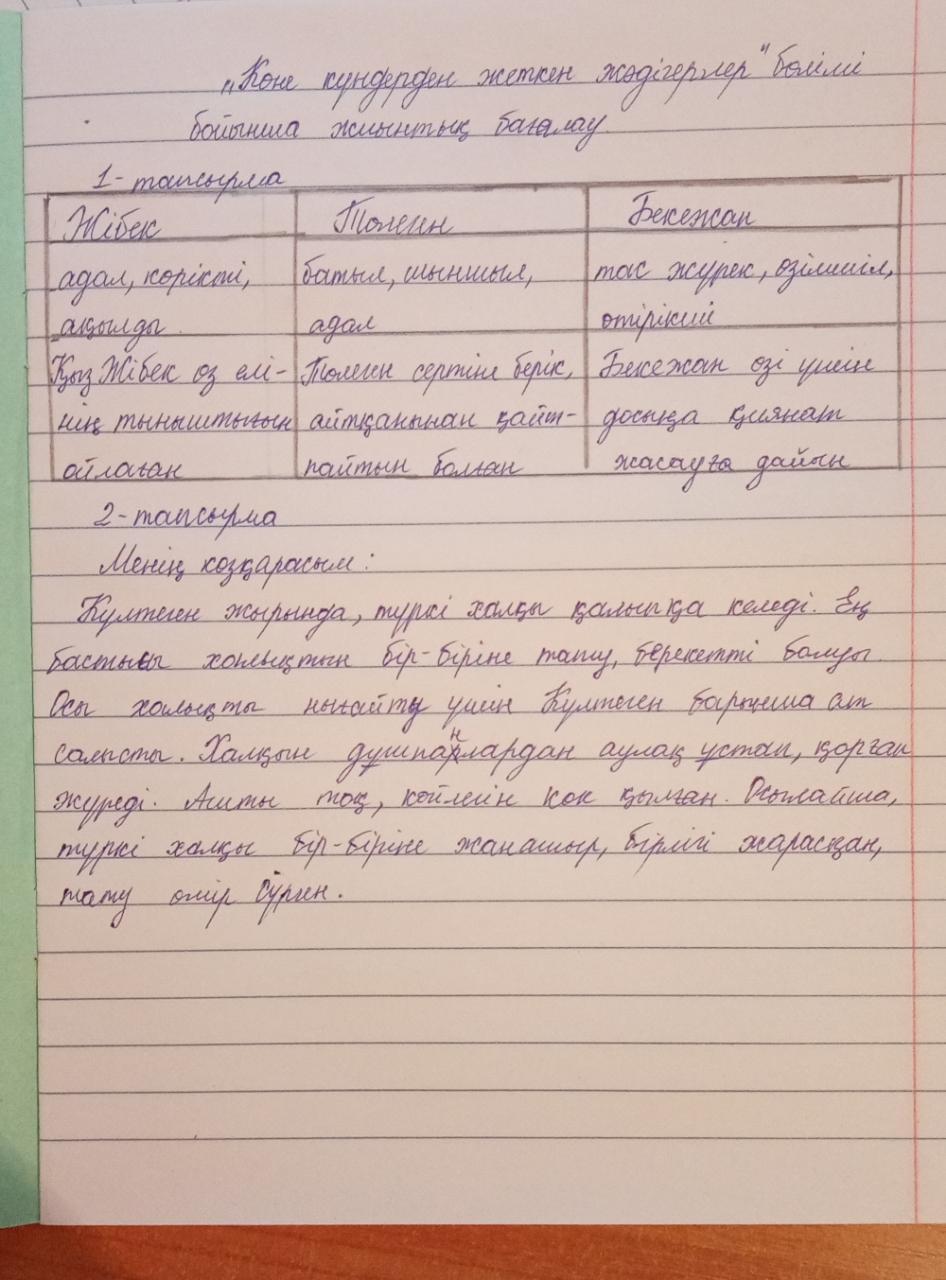 „Көне күндерден жеткен жәдігерлер" бөлімі
бойынша жиынтық бағалау.
1- тапсырма
Жібек Төлеген Бекежан
адал, көрікті, батыл, шыншыл, тас жүрек, өзімшіл,
ақылды. адал өтірікші
Қыз Жібек өз елі- Төлеген сертіне берік, Бекежан өзі үшін
нің тыныштығын айтқанынан қайт- досыңа қиянат
ойлаған пайтын болған жасауға дайын
2- тапсырма
Менің көзқарасым:
Күлтеген жырында, түркі халқы қалыпқа келеді. Ең
бастысы халықтын бір-біріне тату, берекетті болуы.
Осы халықты нығайту үшін Күлтеген барынша ат
салысты. Халқын дұшпандардан аулақ ұстап, қорған
жүреді. Ашты тоқ, көйлегін көк қылған. Осылайша,
түркі халқы бір-біріне жанашыр, бірлігі жарасқан,
тату өмір сүрген.